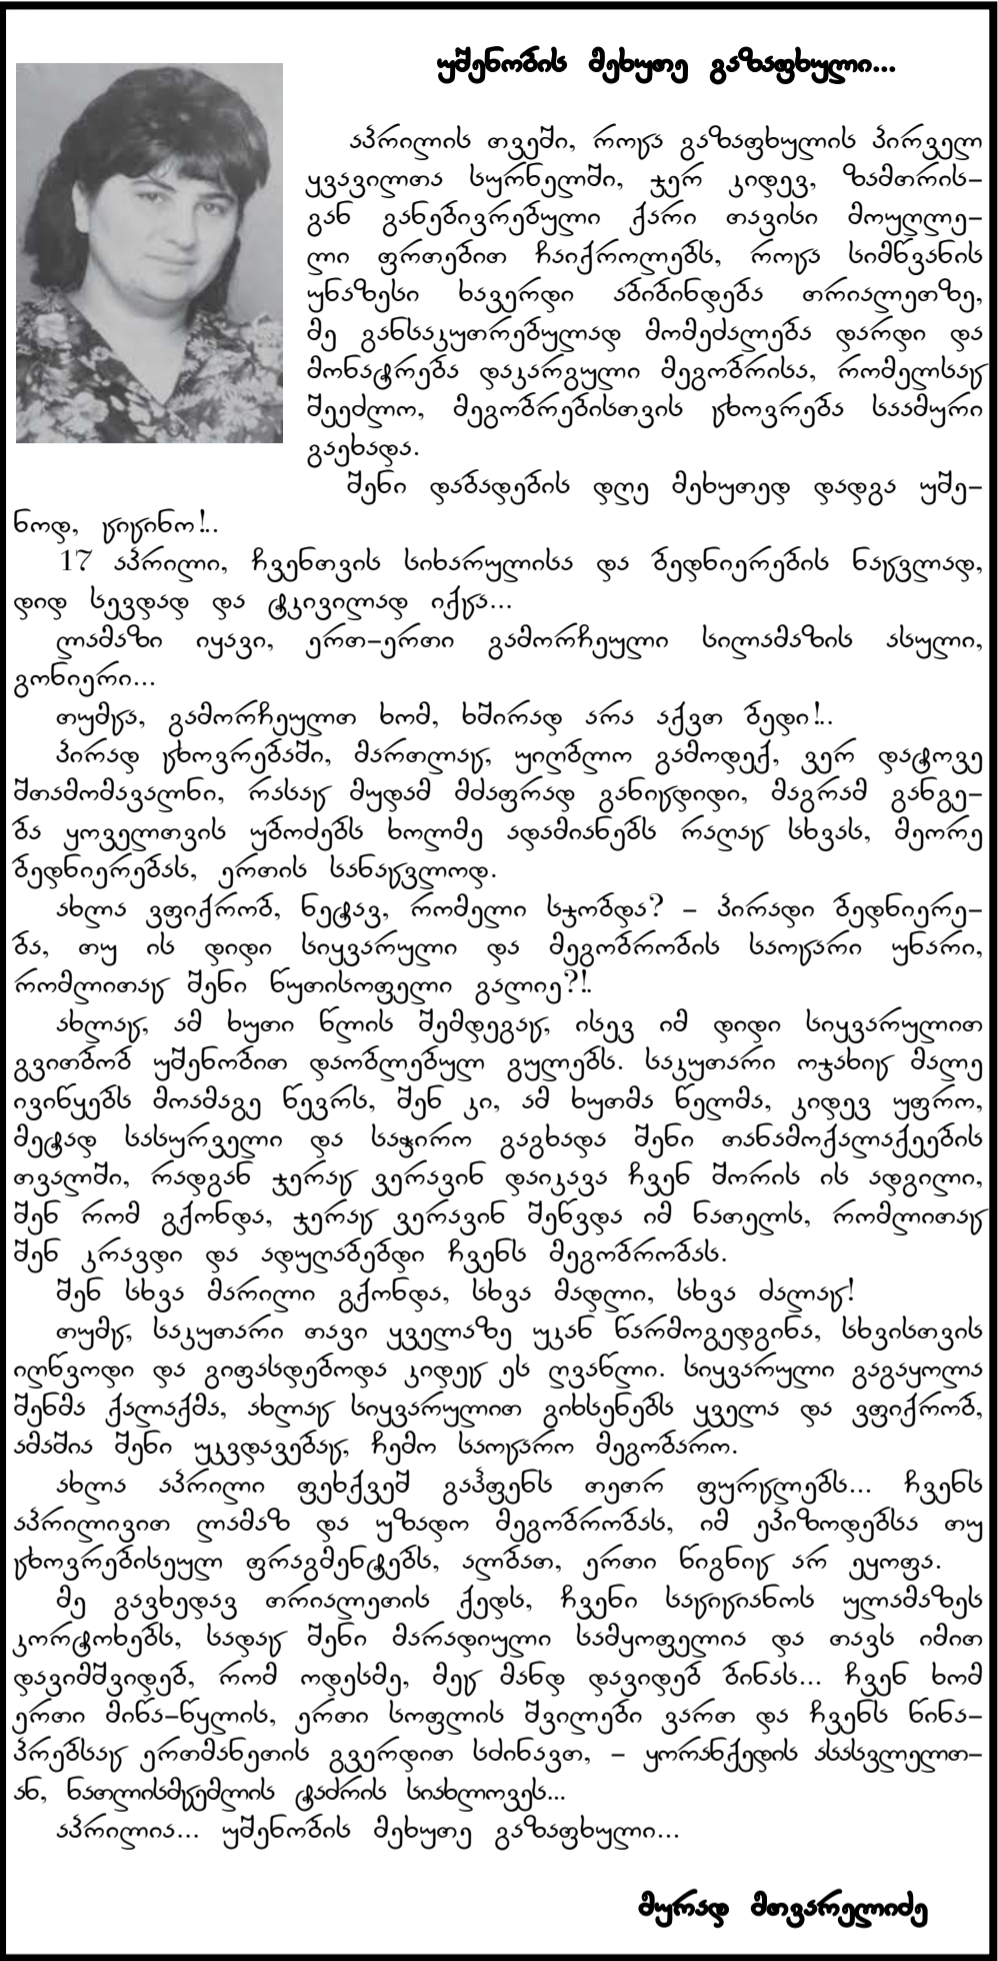 უშენობის მეხუთე გაზაფხული...
აპრილის თვეში, როცა გაზაფხულის პირველ
ყვავილთა სურნელში, ჯერ კიდევ, ზამთრის-
გან განებივრებული ქარი თავისი მოუღლე-
ლი ფრთებით ჩაიქროლებს, როცა სიმწვანის
უნაზესი ხავერდი აბიბინდება თრიალეთზე,
მე განსაკუთრებულად მომეძალება დარდი და
მონატრება დაკარგული მეგობრისა, რომელსაც
შეეძლო, მეგობრებისთვის ცხოვრება საამური
გაეხადა.
შენი დაბადების დღე მეხუთედ დადგა უშე-
ნოდ, ციცინო!..
17 აპრილი, ჩვენთვის სიხარულისა და ბედნიერების ნაცვლად,
დიდ სევდად და ტკივილად იქცა...
ლამაზი იყავი, ერთ-ერთი გამორჩეული სილამაზის ასული,
გონიერი...
თუმცა, გამორჩეულთ ხომ, ხშირად არა აქვთ ბედი!..
პირად ცხოვრებაში, მართლაც, უიღბლო გამოდექ, ვერ დატოვე
შთამომავალნი, რასაც მუდამ მძაფრად განიცდიდი, მაგრამ განგე-
ბა ყოველთვის უბოძებს ხოლმე ადამიანებს რაღაც სხვას, მეორე
ბედნიერებას, ერთის სანაცვლოდ.
ახლა ვფიქრობ, ნეტავ, რომელი სჯობდა? – პირადი ბედნიერე-
ბა, თუ ის დიდი სიყვარული და მეგობრობის საოცარი უნარი,
რომლითაც შენი წუთისოფელი გალიე?!.
ახლაც, ამ ხუთი წლის შემდეგაც, ისევ იმ დიდი სიყვარულით
გვითბობ უშენობით დაობლებულ გულებს. საკუთარი ოჯახიც მალე
ივიწყებს მოამაგე წევრს, შენ კი, ამ ხუთმა წელმა, კიდევ უფრო,
მეტად სასურველი და საჭირო გაგხადა შენი თანამოქალაქეების
თვალში, რადგან ჯერაც ვერავინ დაიკავა ჩვენ შორის ის ადგილი,
შენ რომ გქონდა, ჯერაც ვერავინ შეწვდა იმ ნათელს, რომლითაც
შენ კრავდი და ადუღაბებდი ჩვენს მეგობრობას.
შენ სხვა მარილი გქონდა, სხვა მადლი, სხვა ძალაც!
თუმც, საკუთარი თავი ყველაზე უკან წარმოგედგინა, სხვისთვის
იღწვოდი და გიფასდებოდა კიდეც ეს ღვაწლი. სიყვარული გაგაყოლა
შენმა ქალაქმა, ახლაც სიყვარულით გიხსენებს ყველა და ვფიქრობ,
ამაშია შენი უკვდავებაც, ჩემო საოცარო მეგობარო.
ახლა აპრილი ფეხქვეშ გაჰფენს თეთრ ფურცლებს... ჩვენს
აპრილივით ლამაზ და უზადო მეგობრობას, იმ ეპიზოდებსა თუ
ცხოვრებისეულ ფრაგმენტებს, ალბათ, ერთი წიგნიც არ ეყოფა.
მე გავხედავ თრიალეთის ქედს, ჩვენი საციციანოს ულამაზეს
კორტოხებს, სადაც შენი მარადიული სამყოფელია და თავს იმით
დავიმშვიდებ, რომ ოდესმე, მეც მანდ დავიდებ ბინას... ჩვენ ხომ
ერთი მიწა-წყლის, ერთი სოფლის შვილები ვართ და ჩვენს წინა-
პრებსაც ერთმანეთის გვერდით სძინავთ, – ყორანქედის ასასვლელთ-
ან, ნათლისმცემლის ტაძრის სიახლოვეს...
აპრილია... უშენობის მეხუთე გაზაფხული...
მურად მთვარელიძე